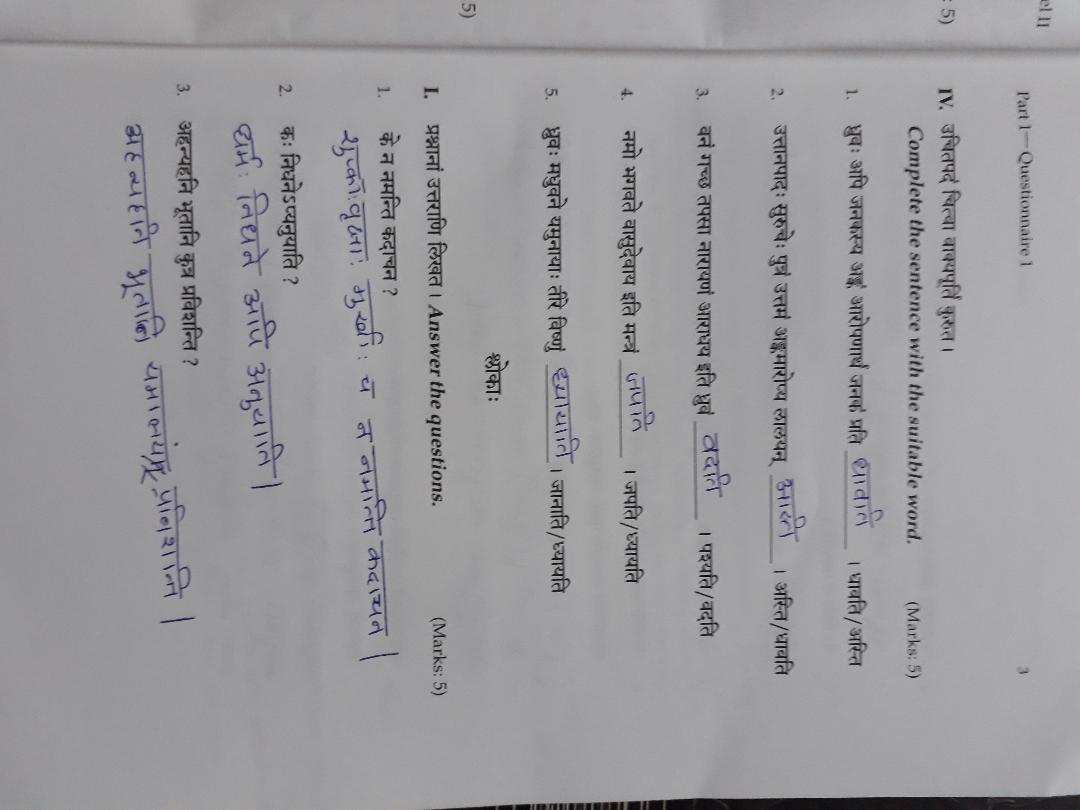 el II
Part 1—Questionnaire 1 3
: 5)
IV. उचितपदं चित्वा वाक्यपूर्तिं कुरुत ।
Complete the sentence with the suitable word. (Marks: 5)
1. ध्रुवः अपि जनकस्य अङ्कं आरोपणार्थं जनकं प्रति धावति । धावति/अस्ति
2. उत्तानपादः सुरुचेः पुत्रं उत्तमं अङ्कमारोप्य लालयन् अस्ति । अस्ति/धावति
3. वनं गच्छ तपसा नारायणं आराधय इति ध्रुवं वदति । पश्यति/वदति
4. नमो भगवते वासुदेवाय इति मन्त्रं जपति । जपति/ध्यायति
5. ध्रुवः मधुवने यमुनायाः तीरे विष्णुं ध्यायति । जानाति/ध्यायति
श्लोकाः
5)
I. प्रश्नानां उत्तराणि लिखत । Answer the questions. (Marks: 5)
1. के न नमन्ति कदाचन ?
शुष्काः वृक्षाः मुर्खाः च न नमन्ति कदाचन |
2. कः निधनेऽप्यनुयाति ?
धर्मः निधने अपि अनुयाति |
3. अहन्यहनि भूतानि कुत्र प्रविशन्ति ?
अहन्यहनि भूतानि यमालयं प्रविशन्ति |